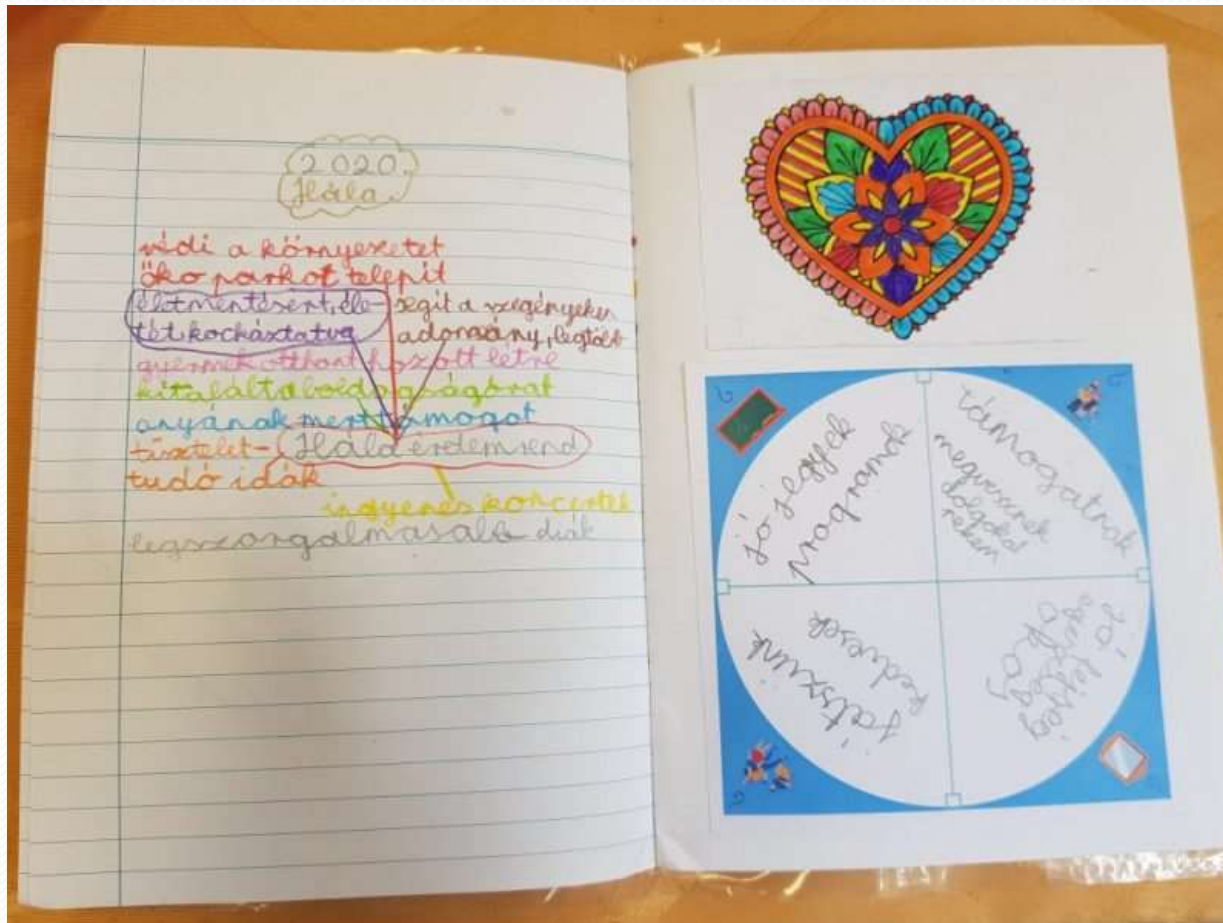 2020.
Hála.
védi a környezetet
öko parkot telepít
életmentésért, éle-
tét kockáztatva
segít a szegényeken
adomány, legtöbb
gyermek otthont hozott létre
kitalálta boldogságórát
anyának mert támogat
tisztelet- Hálaérdemrend
tudó idák
ingyenes koncertek
legszorgalmasabb diák
jó jegyek
programok
támogatnak
megvesznek
dolgokat
nekem
játszunk
kedvesek